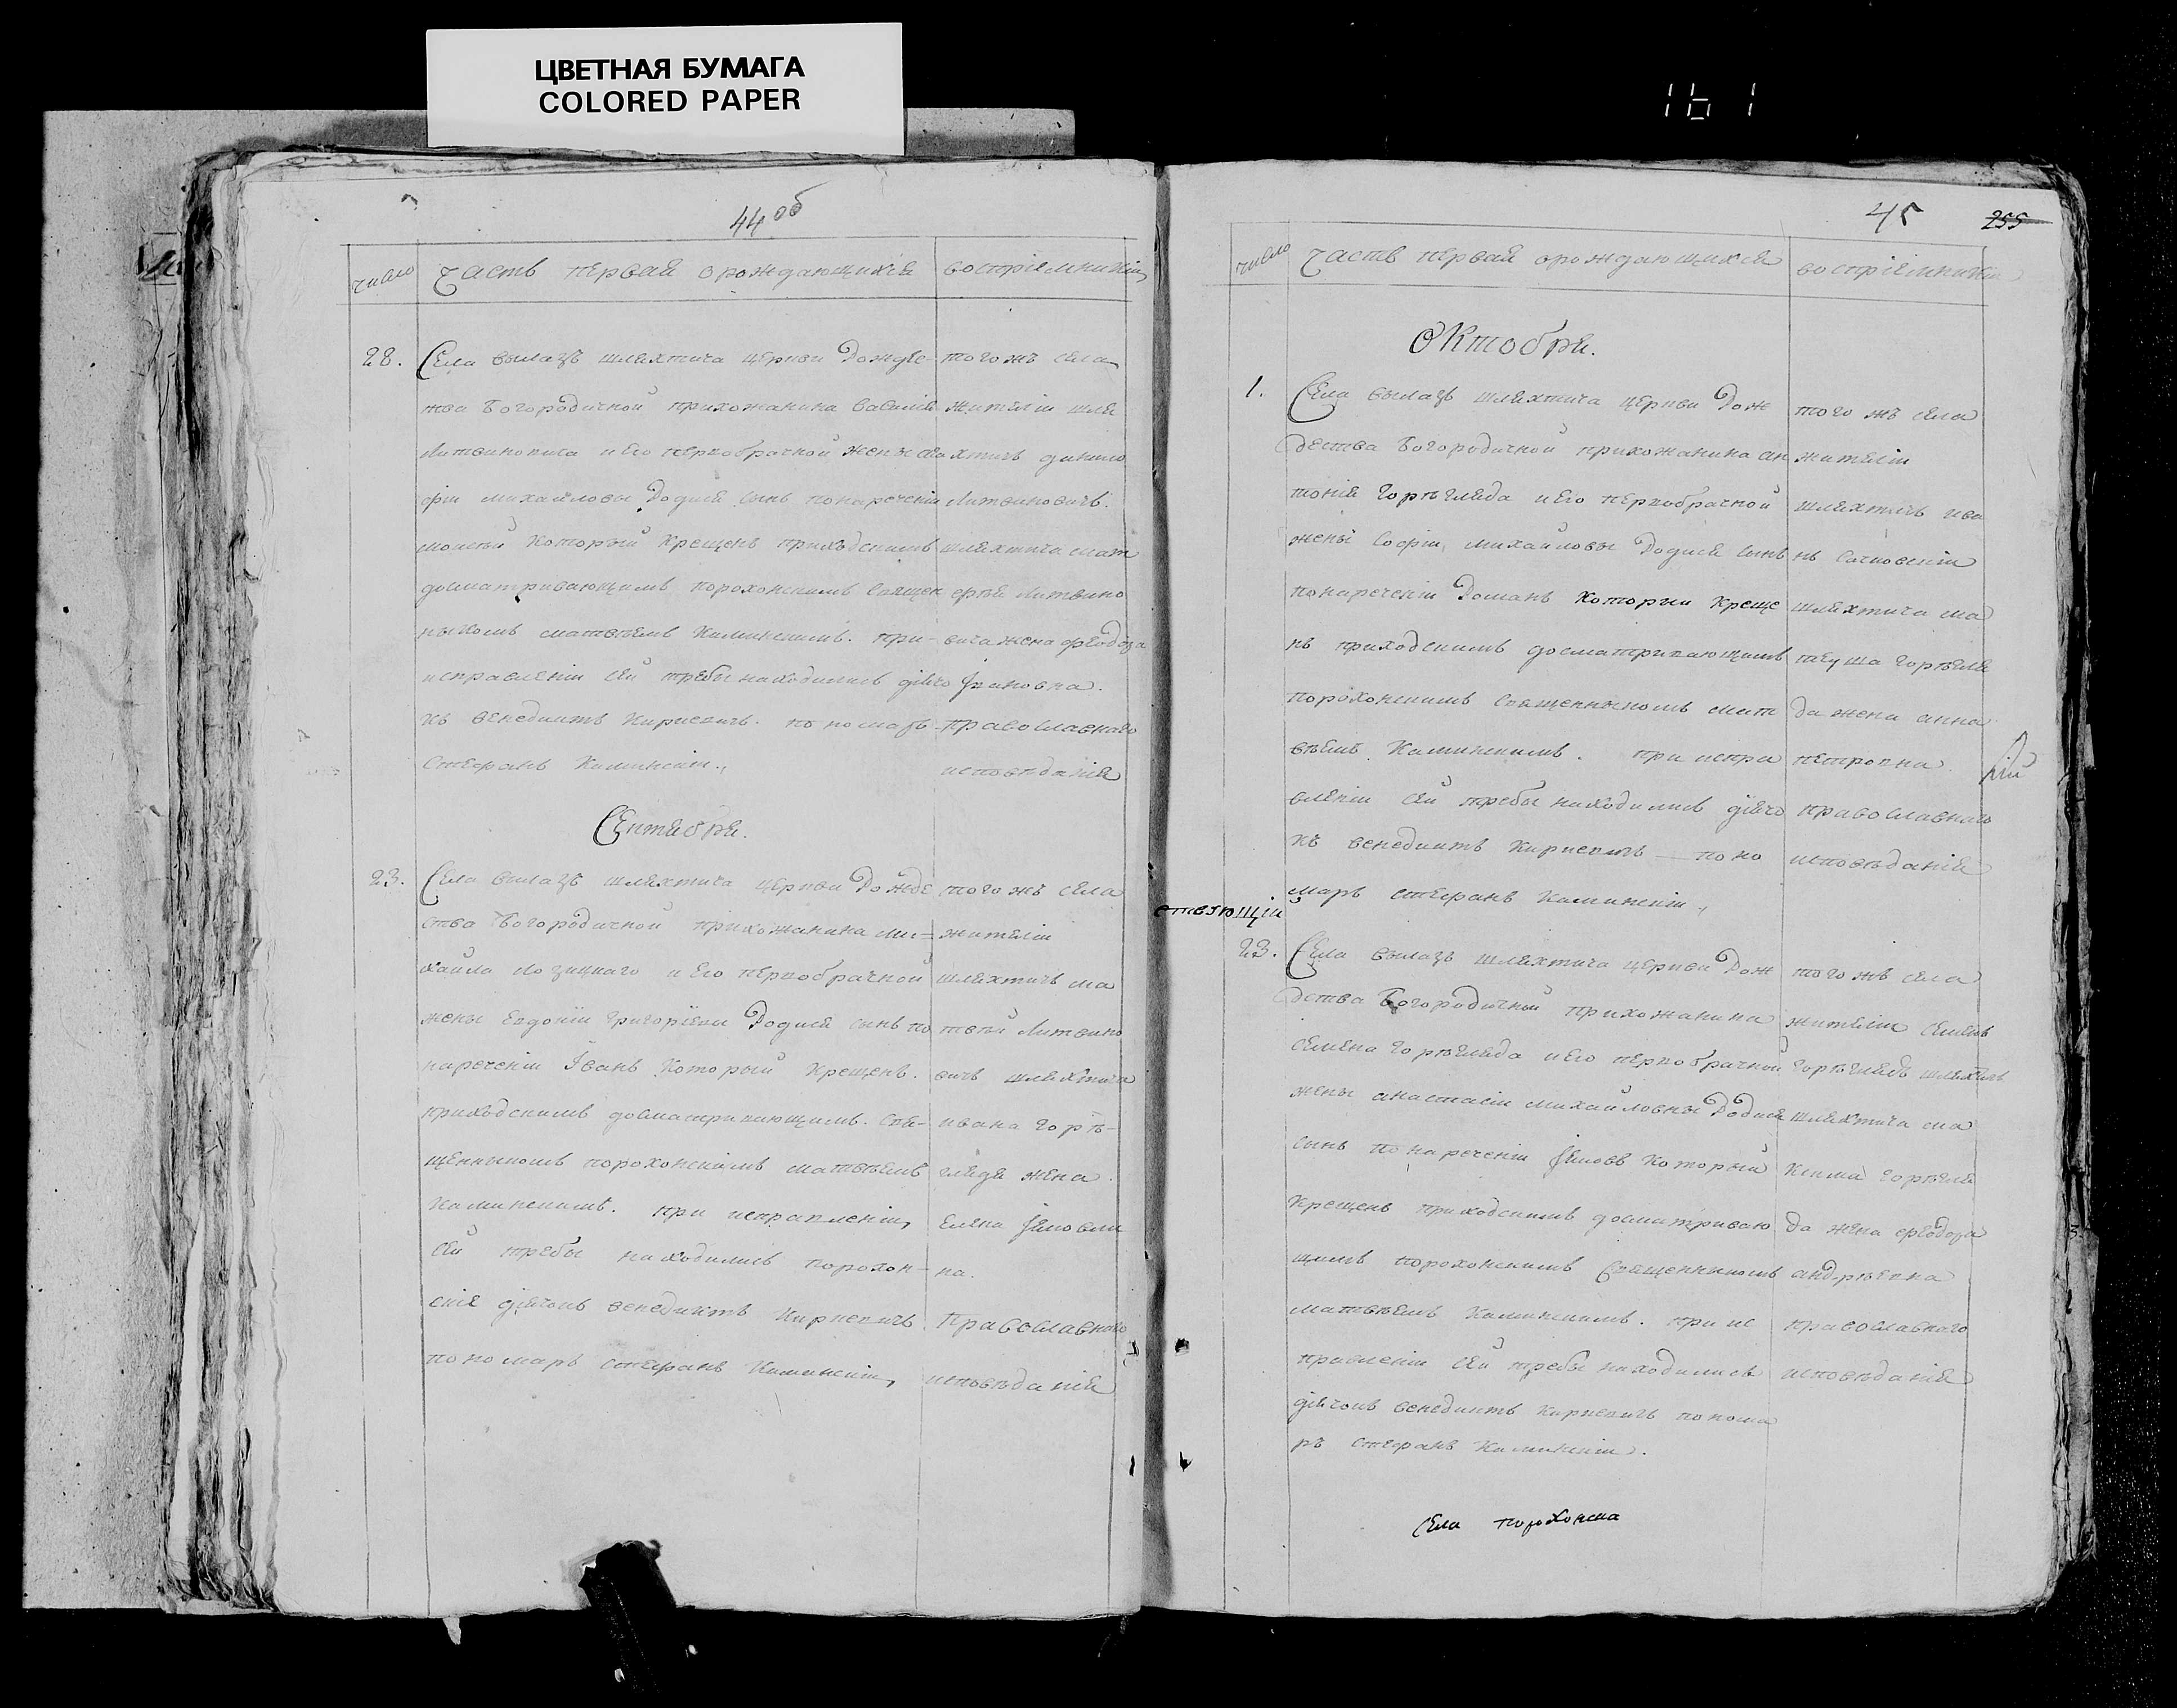 ЦВЕТНАЯ БУМАГА
COLORED PAPER
161
44 об
число
Часть первая о рождающихся
воспріемники
28.
Села вылазъ шляхтича церкви Рождес-
тва Богородичной прихожанина василія
Литвиновича и его первобрачной жены
фіи михайловы Родися сынъ по наречении
который крещенъ приходскимъ
досматривающимъ порохонскимъ священ
ныкомъ матвѣемъ Каминскимъ. при-
исправленіи сей требы находились дячо
къ венедиктъ Кирневичъ. пономарь
стефанъ Каминскій.
того жъ села
жителіи шля
хтичъ данило
Литвиновичъ.
шляхтича мат
ефея Литвино
вича жена феодора
Ивановна.
православнаго
исповѣданія
Сентября.
23.
Села вылазъ шляхтича церкви Рожде
ства Богородичной прихожанина ми-
хайла Лозицкаго и его первобрачной
жены Евдокіи григоріевы Родися сынъ по
наречении Іванъ который крещенъ.
приходскимъ досматривающимъ. свя-
щенныкомъ порохонскимъ матвѣемъ
Каминскимъ. при исправленіи
сей требы находились порохон-
скіе дячокъ венедиктъ Кирневичъ
пономарь стефанъ Каминскій,
того жъ села
жителіи
шляхтичъ ма
твѣй Литвино
вичъ шляхтича
ивана горѣ-
гляда жена
Елена Яковли
на.
Православнаго
исповѣданія
45
255
число
Часть первая о рождающихся
воспріемники
Октобря.
1.
Села вылазъ шляхтича церкви Рож
дества Богородичной прихожанина ан
тонія горѣгляда и его первобрачной
жены Софіи, михайловы Родися сынъ
по наречении Романъ который креще
нъ приходскимъ досматривающимъ
порохонскимъ священныкомъ мат
вѣемъ Каминскимъ. при испра
вленіи сей требы находились дячо
къ венедиктъ Кирневичъ — поно
марь стефанъ Каминскій,
того жъ села
жителіи
шляхтичъ ива
нъ
шляхтича ма
теуша горѣгля
да жена анна
петровна
православнаго
исповѣданія
23.
Села вылазъ шляхтича церкви Рож
дства Богородичной прихожанина
семена горѣгляда и его первобрачной
жены анастасіи михайловны Родися
сынъ по наречении Яковъ который
крещенъ приходскимъ досматриваю
щимъ порохонскимъ священныкомъ
матвѣемъ Каминскимъ. при ис
правленіи сей требы находились
дячокъ венедиктъ Кирневичъ понома
ръ стефанъ Каминскій.
того жъ села
жителіи семенъ
горѣглядъ шляхтичъ
шляхтича ма
ксима горѣгля
да жена феодора
андрѣевна
православнаго
исповѣданія
Села порохонска